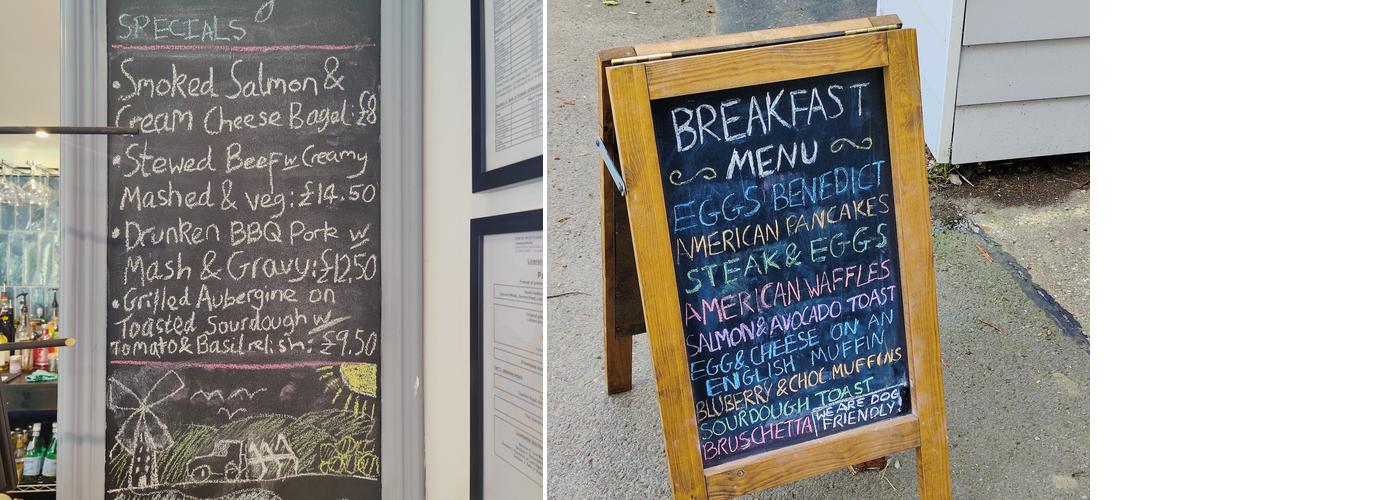 SPECIALS
•Smoked Salmon &
Cream Cheese Bagel:£8
•Stewed Beef w Creamy
Mashed & veg:£14.50
•Drunken BBQ Pork w
Mash & Gravy:£12.50
•Grilled Aubergine on
Toasted Sourdough w
Tomato & Basil relish: £9.50
BREAKFAST
MENU
EGGS BENEDICT
AMERICAN PANCAKES
STEAK & EGGS
AMERICAN WAFFLES
SALMON & AVOCADO TOAST
EGG & CHEESE ON AN
ENGLISH MUFFIN
BLUBERRY & CHOC MUFFINS
SOURDOUGH TOAST
BRUSCHETTA
WE ARE DOG
FRIENDLY!